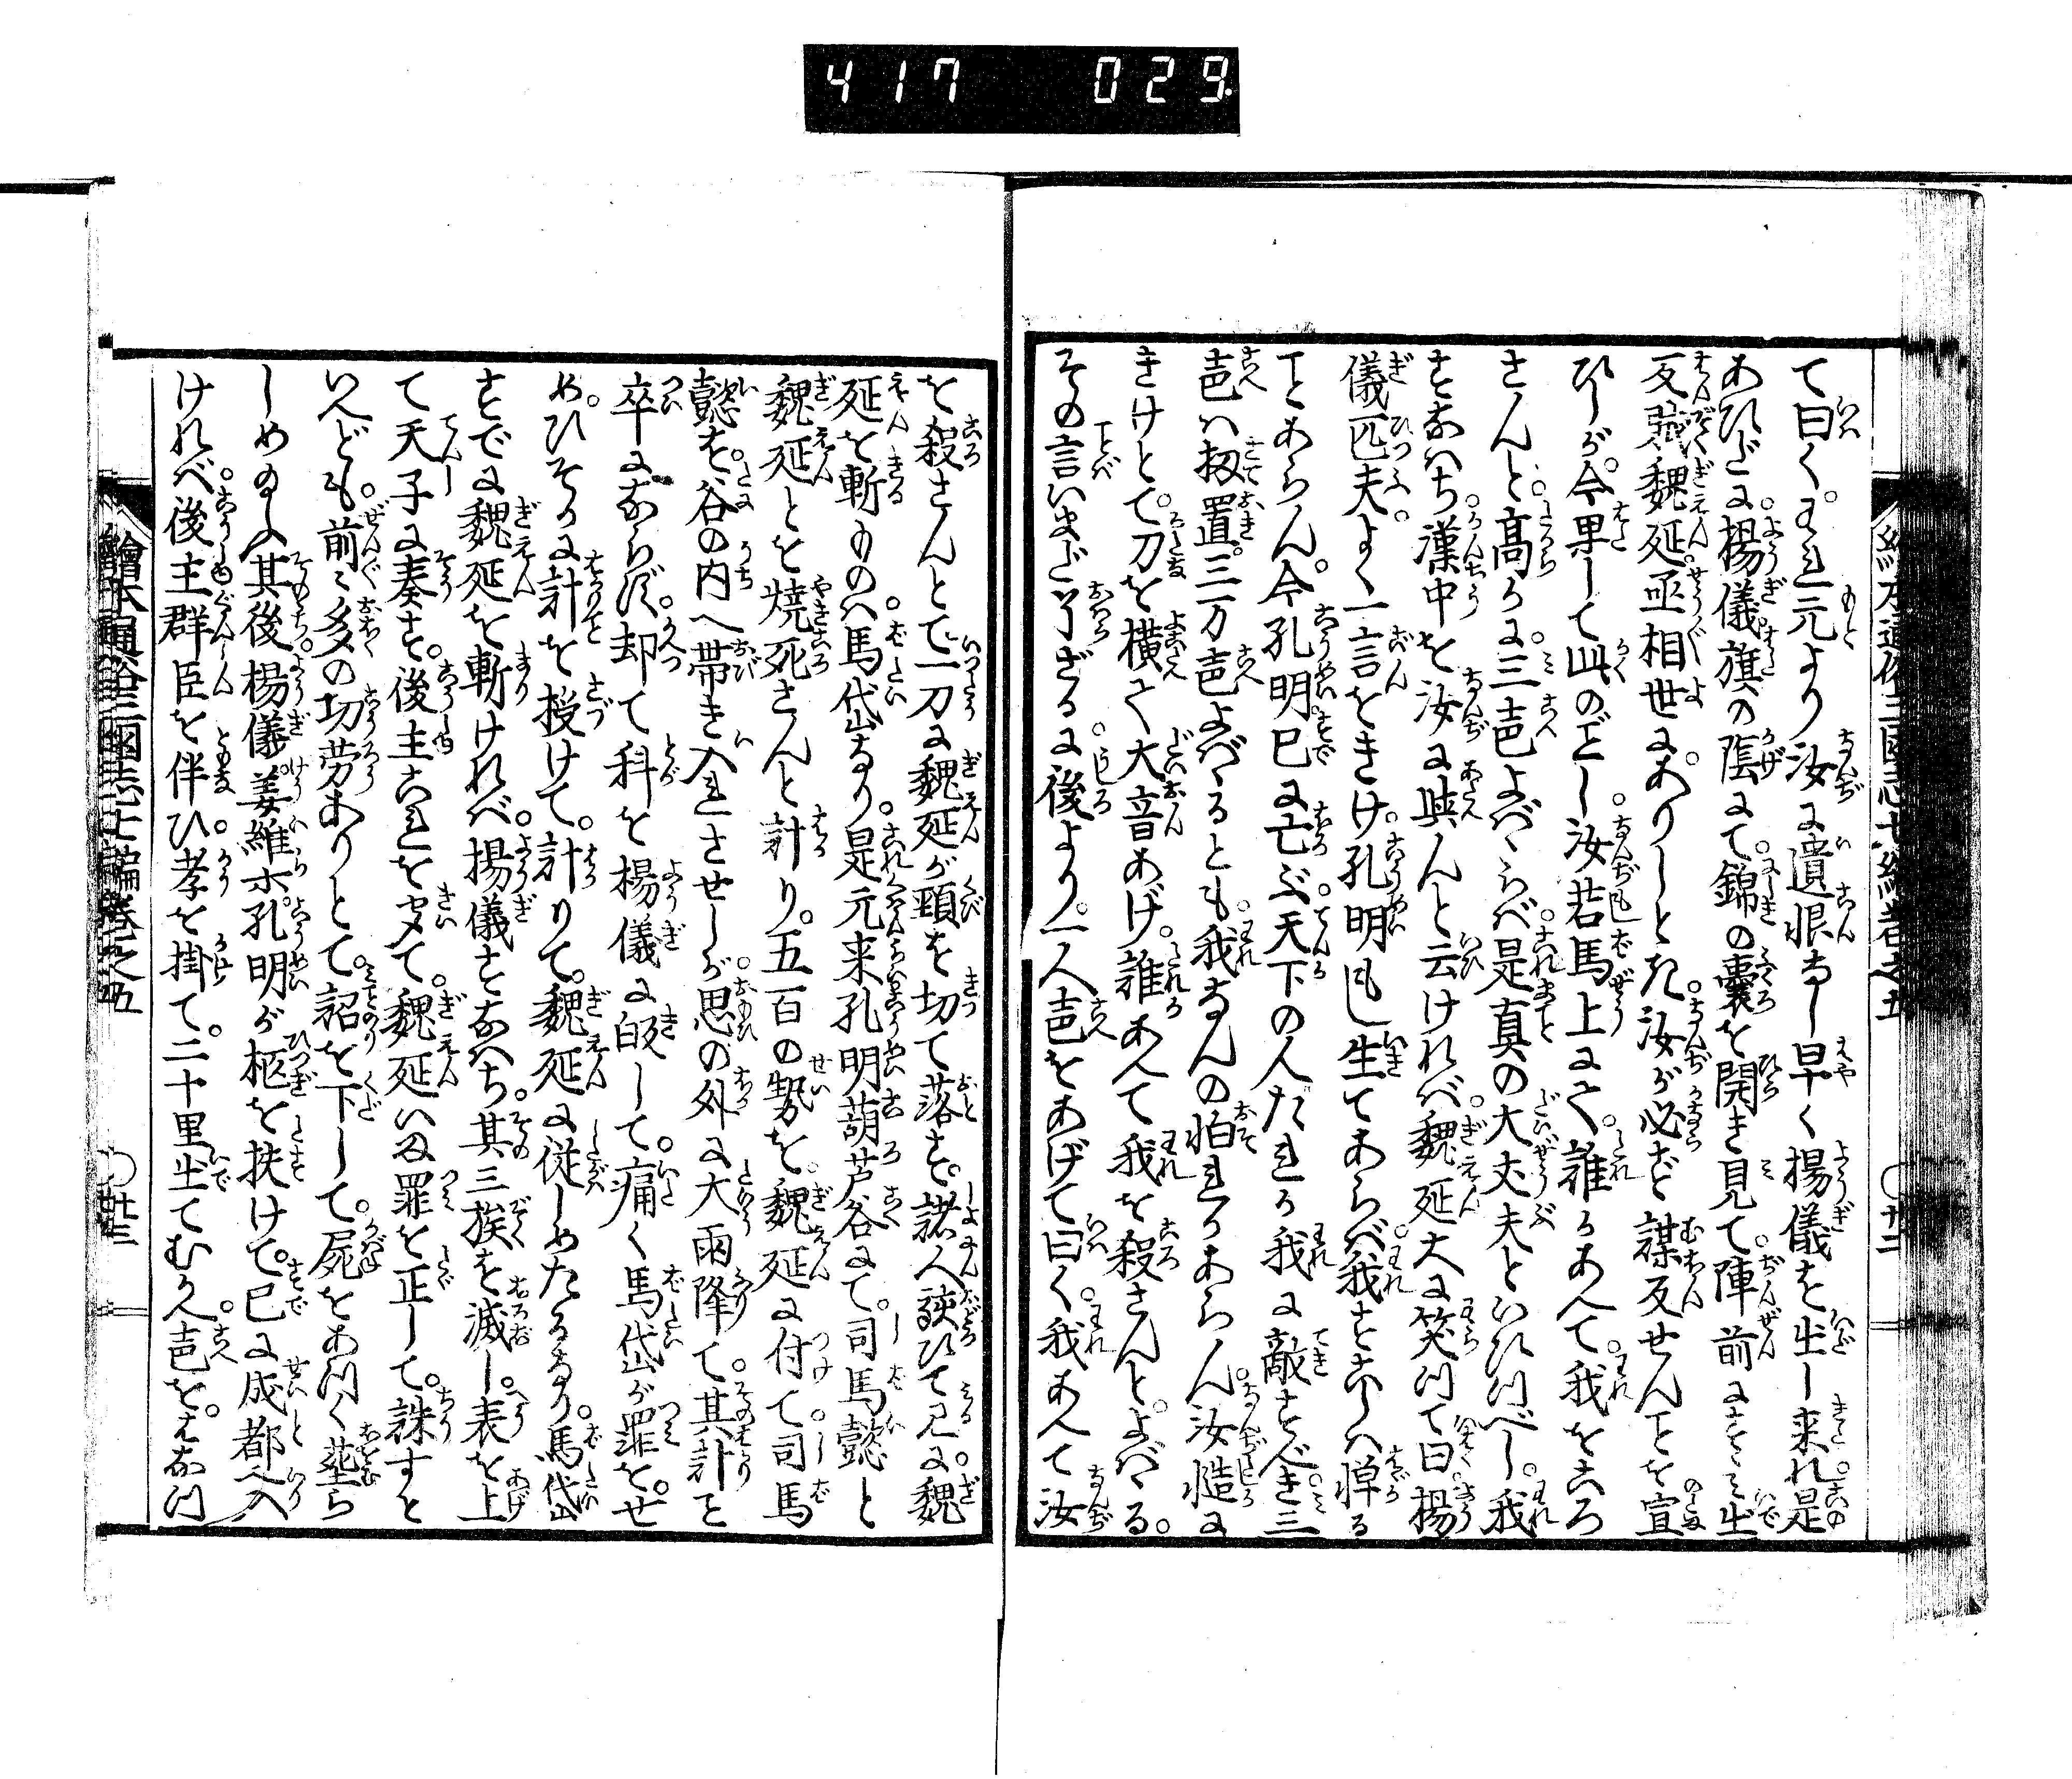 417 029
て曰く。われ元より汝に遺恨なし早く楊儀を出し来れ是
あひだに。楊儀旗の蔭にて。錦の嚢を開き見て。陣前にすゝみ出
反賊魏延。丞相世に。ありしとき。汝が必ず謀反せんことを宣
ひしが。今果して此のごとし。汝若馬上にて。誰かあへて。我をころ
さんと。高らかに。三声よばゝらば。是真の大丈夫といひつべし。我
すなはち。漢中を汝に与んと云ければ。魏延大に笑つて曰。楊
儀匹夫。よく一言をきけ。孔明もし生てあらば。我すこしは憚る
ことあらん。今孔明已に亡ぶ。天下の人たれか我に敵すべき。三
声は扨置。三万声よばゝるとも。我なんの怕れかあらん。汝慥に
きけとて。刀を横へ大音あげ。誰あへて我を殺さんと。よばゝる。
その言いまだ了ざるに。後より。一人声をあげて曰く。我あへて汝
を殺さんとて一刀に魏延が頸を切て落す。諸人驚ひて見るに。魏
延を斬ものは。馬岱なり。是元来孔明葫芦谷にて。司馬懿と
魏延とを焼死さんと計り。五百の勢を。魏延に付て。司馬
懿を。谷の内へ帯き入れさせしが。思の外に大雨降て。其計を
卒にならず。却て科を楊儀に皈して。痛く馬岱が罪を。せ
め。ひそかに計を授けて。計りて。魏延に従しめたるなり。馬岱
すでに魏延を斬ければ。揚儀すなはち。其三族を滅し。表を上
て天子に奏す。後主これをきいて。魏延いま罪を正して。誅すと
いへども。前々多の切労ありとて。詔を下して。屍をあつく葬ら
しめ給ふ。其後楊儀。姜維ホ。孔明が柩を扶けて。已に成都へ入
ければ。後主群臣を伴ひ。孝を掛て。二十里出てむかへ。声を。はなつ
繪本通俗三国志七編巻之五
廿三